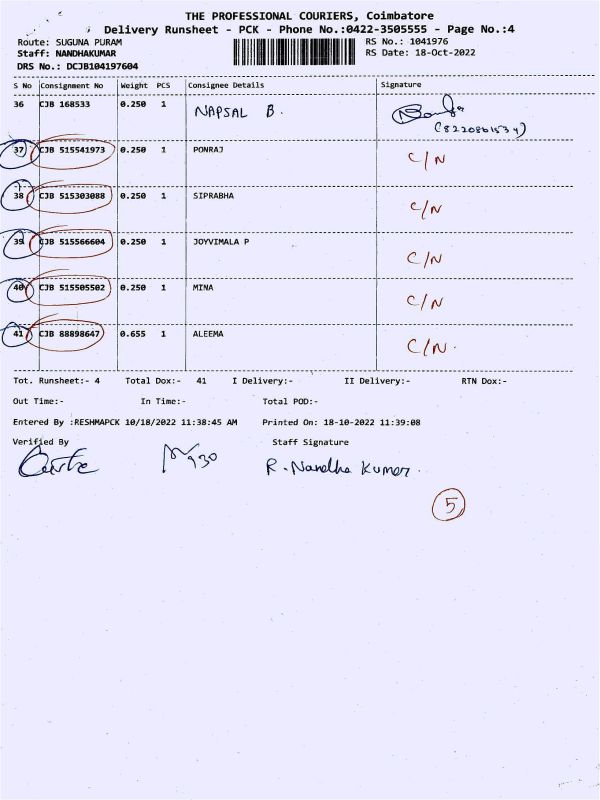 THE PROFESSIONAL COURIERS, Coimbatore
Delivery Runsheet - PCK - Phone No.:0422-3505555 - Page No.:4
Route: SUGUNA PURAM RS No.: 1041976
Staff: NANDHAKUMAR RS Date: 18-Oct-2022
DRS No.: DCJB104197604
S No Consignment No Weight PCS Consignee Details Signature
36 CJB 168533 0.250 1 NAPSAL B.
(8220861534)
37 CJB 515541973 0.250 1 PONRAJ C/N
38 CJB 515303088 0.250 1 SIPRABHA C/N
39 CJB 515566604 0.250 1 JOYVIMALA P C/N
40 CJB 515505502 0.250 1 MINA C/N
41 CJB 88898647 0.655 1 ALEEMA C/N.
Tot. Runsheet:- 4 Total Dox:- 41 I Delivery:- II Delivery:- RTN Dox:-
Out Time:- In Time:- Total POD:-
Entered By :RESHMAPCK 10/18/2022 11:38:45 AM Printed On: 18-10-2022 11:39:08
Verified By Staff Signature
R. Nandha Kumar.
5